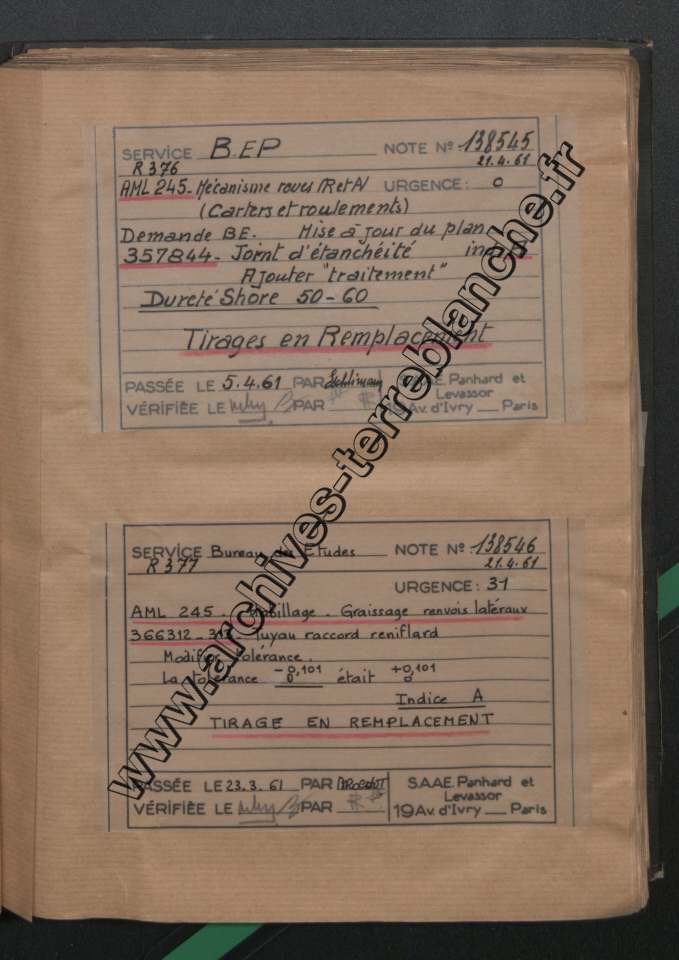 SERVICE B.EP NOTE Nº 138545
R 376 21.4.61
AML 245 - Mécanisme roues AR et AV URGENCE: 0
(Carters et roulements)
Demande BE. Mise à jour du plan
357844 - Joint d'étanchéité
Ajouter "traitement"
Dureté Shore 50-60
Tirages en Remplacement
PASSÉE LE 5.4.61 PAR S.A.A.E. Panhard et
Levassor
VÉRIFIÉE LE PAR 19 Av. d'Ivry Paris
SERVICE Bureau des Etudes NOTE Nº 138546
R 377 21.4.61
URGENCE: 31
AML 245 - Habillage - Graissage renvois latéraux
366312 - Tuyau raccord reniflard
Modifier tolérance.
La tolérance -0,101 était +0,101
0 0
Indice A
TIRAGE EN REMPLACEMENT
PASSÉE LE 23.3.61 PAR S.A.A.E. Panhard et
Levassor
VÉRIFIÉE LE PAR 19 Av. d'Ivry Paris
www.archives-terreblanche.fr